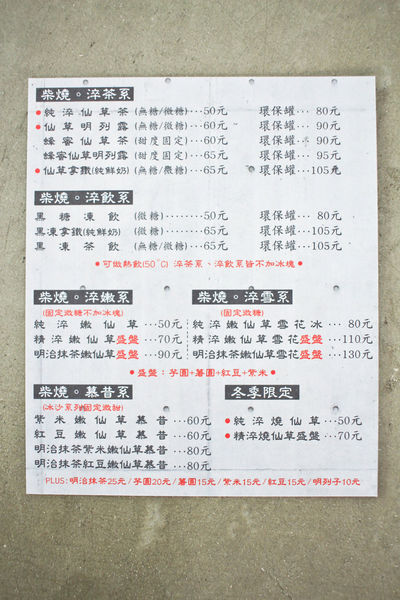 柴燒。淬茶系
●純淬仙草茶(無糖/微糖)…50元 環保罐…80元
●仙草明列露(無糖/微糖)…60元 環保罐…90元
蜂蜜仙草茶(甜度固定)…60元 環保罐…90元
蜂蜜仙草明列露(甜度固定)…65元 環保罐…95元
●仙草拿鐵(純鮮奶)(無糖/微糖)…65元 環保罐…105元
柴燒。淬飲系
黑糖凍飲(微糖)………50元 環保罐…80元
黑凍拿鐵(純鮮奶)(微糖)………65元 環保罐…105元
黑凍茶飲(無糖/微糖)…65元 環保罐…105元
●可做熱飲(50°C) 淬茶系、淬飲系皆不加冰塊●
柴燒。淬嫩系 柴燒。淬雪系
(固定微糖不加冰塊) (固定微糖)
純淬嫩仙草…50元 純淬嫩仙草雪花冰…80元
精淬嫩仙草盛盤…70元 精淬嫩仙草雪花盛盤…110元
明治抹茶嫩仙草盛盤…90元 明治抹茶嫩仙草雪花盛盤…130元
●盛盤：芋圓+薯圓+紅豆+紫米●
柴燒。慕昔系 冬季限定
(冰沙系列固定微甜)
紫米嫩仙草慕昔…60元 ●純淬燒仙草…50元
紅豆嫩仙草慕昔…60元 ●精淬燒仙草盛盤…70元
明治抹茶紫米嫩仙草慕昔…80元
明治抹茶紅豆嫩仙草慕昔…80元
PLUS:明治抹茶25元/芋圓20元/薯圓15元/紫米15元/紅豆15元/明列子10元